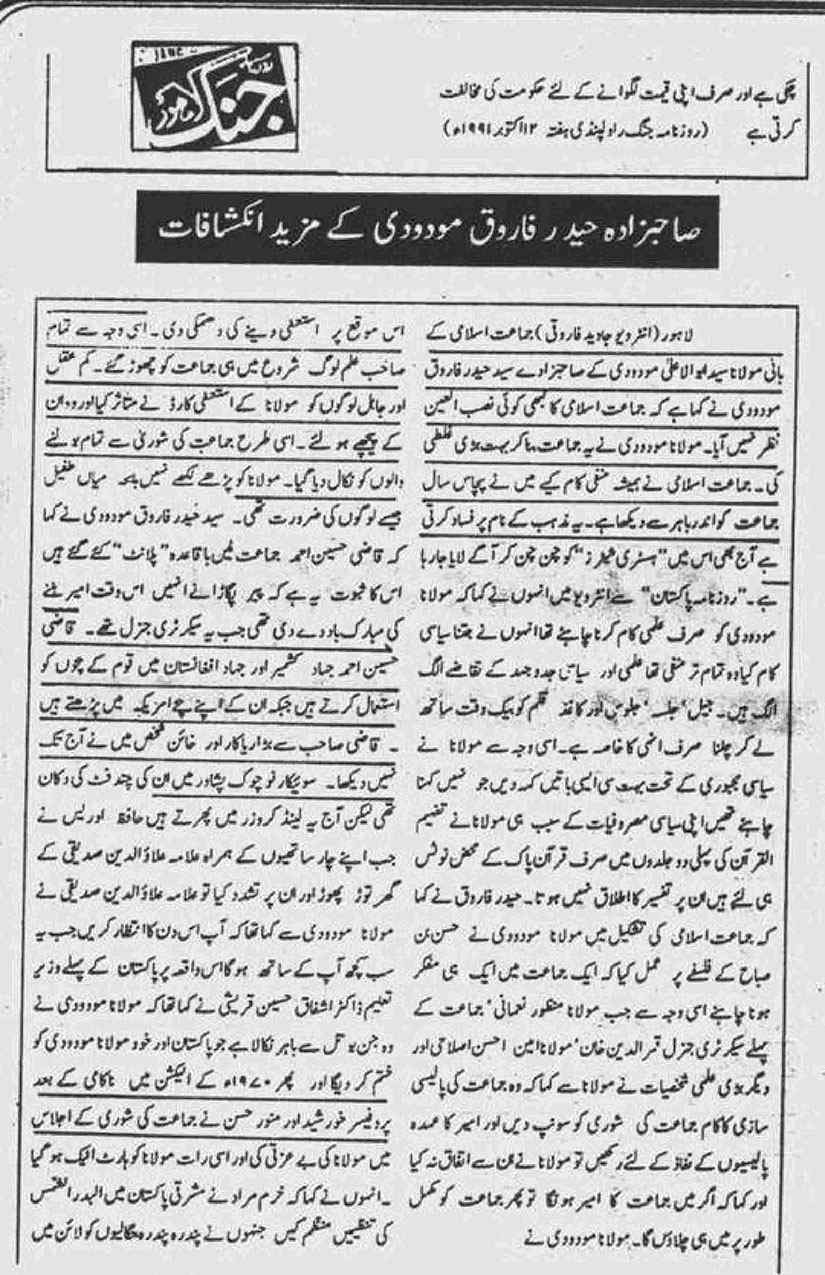 JANG
روزنامہ
جنگ
لاہور
چکی ہے اور صرف اپنی قیمت لگوانے کے لئے حکومت کی مخالفت
کرتی ہے (روزنامہ جنگ راولپنڈی ہفتہ ۱۲ اکتوبر ۱۹۹۱ء)
صاحبزادہ حیدر فاروق مودودی کے مزید انکشافات
لاہور (انٹرویو جاوید فاروقی) جماعت اسلامی کے
بانی مولانا سید ابوالاعلیٰ مودودی کے صاحبزادے سید حیدر فاروق
مودودی نے کہا ہے کہ جماعت اسلامی کا کبھی کوئی نصب العین
نظر نہیں آیا۔ مولانا مودودی نے یہ جماعت بنا کر بہت بڑی غلطی
کی۔ جماعت اسلامی نے ہمیشہ منفی کام کیے میں نے پچاس سال
جماعت کو اندر باہر سے دیکھا ہے۔ یہ مذہب کے نام پر فساد کرتی
ہے آج بھی اس میں "ہسٹری شیٹرز" کو چن چن کر آگے لایا جا رہا
ہے۔ "روزنامہ پاکستان" سے انٹرویو میں انہوں نے کہا کہ مولانا
مودودی کو صرف علمی کام کرنا چاہئے تھا انہوں نے جتنا سیاسی
کام کیا وہ تمام تر منفی تھا علمی اور سیاسی جدوجہد کے تقاضے الگ
الگ ہیں۔ جیل، جلسہ، جلوس اور کاغذ قلم کو بیک وقت ساتھ
لے کر چلنا صرف انہی کا خاصہ ہے۔ اسی وجہ سے مولانا نے
سیاسی مجبوری کے تحت بہت سی ایسی باتیں کہہ دیں جو نہیں کہنا
چاہئے تھیں اپنی سیاسی مصروفیات کے سبب ہی مولانا نے تفہیم
القرآن کی پہلی دو جلدوں میں صرف قرآن پاک کے محض نوٹس
ہی لئے ہیں ان پر تفسیر کا اطلاق نہیں ہوتا۔ حیدر فاروق نے کہا
کہ جماعت اسلامی کی تشکیل میں مولانا مودودی نے حسن بن
صباح کے فلسفے پر عمل کیا کہ ایک جماعت میں ایک ہی مفکر
ہونا چاہئے اسی وجہ سے جب مولانا منظور نعمانی، جماعت کے
پہلے سیکرٹری جنرل قمر الدین خان، مولانا امین احسن اصلاحی اور
دیگر بڑی علمی شخصیات نے مولانا سے کہا کہ وہ جماعت کی پالیسی
سازی کا کام جماعت کی شوریٰ کو سونپ دیں اور امیر کا عہدہ
پالیسیوں کے نفاذ کے لئے رکھیں تو مولانا نے ان سے اتفاق نہ کیا
اور کہا کہ اگر میں جماعت کا امیر ہونگا تو پھر جماعت کو مکمل
طور پر میں ہی چلاؤں گا۔ مولانا مودودی نے
اس موقع پر استعفیٰ دینے کی دھمکی دی۔ اسی وجہ سے تمام
صاحب علم لوگ شروع میں ہی جماعت کو چھوڑ گئے۔ کم عقل
اور جاہل لوگوں کو مولانا کے استعفیٰ کارڈ نے متاثر کیا اور وہ ان
کے پیچھے ہو لئے۔ اسی طرح جماعت کی شوریٰ سے تمام بولنے
والوں کو نکال دیا گیا۔ مولانا کو پڑھے لکھے نہیں بلکہ میاں طفیل
جیسے لوگوں کی ضرورت تھی۔ سید حیدر فاروق مودودی نے کہا
کہ قاضی حسین احمد جماعت میں باقاعدہ "پلانٹ" کئے گئے ہیں
اس کا ثبوت یہ ہے کہ پیر پگاڑا نے انہیں اس وقت امیر بننے
کی مبارک باد دے دی تھی جب یہ سیکرٹری جنرل تھے۔ قاضی
حسین احمد جہاد کشمیر اور جہاد افغانستان میں قوم کے بچوں کو
استعمال کرتے ہیں جبکہ ان کے اپنے بچے امریکہ میں پڑھتے ہیں
۔ قاضی صاحب سے بڑا ریاکار اور خائن شخص میں نے آج تک
نہیں دیکھا۔ سوئیکارنو چوک پشاور میں ان کی چند فٹ کی دکان
تھی لیکن آج یہ لینڈ کروزر میں پھرتے ہیں حافظ ادریس نے
جب اپنے چار ساتھیوں کے ہمراہ علامہ علاؤالدین صدیقی کے
گھر توڑ پھوڑ اور ان پر تشدد کیا تو علامہ علاؤالدین صدیقی نے
مولانا مودودی سے کہا تھا کہ آپ اس دن کا انتظار کریں جب یہ
سب کچھ آپ کے ساتھ ہو گا اس واقعہ پر پاکستان کے پہلے وزیر
تعلیم ڈاکٹر اشفاق حسین قریشی نے کہا تھا کہ مولانا مودودی نے
وہ جن بوتل سے باہر نکالا ہے جو پاکستان اور خود مولانا مودودی کو
ختم کر دیگا اور پھر ۱۹۷۰ء کے الیکشن میں ناکامی کے بعد
پروفیسر خورشید اور منور حسن نے جماعت کی شوریٰ کے اجلاس
میں مولانا کی بے عزتی کی اور اسی رات مولانا کو ہارٹ اٹیک ہو گیا
۔ انہوں نے کہا کہ خرم مراد نے مشرقی پاکستان میں البدر الشمس
کی تنظیمیں منظم کیں جنہوں نے پندرہ پندرہ بنگالیوں کو لائن میں